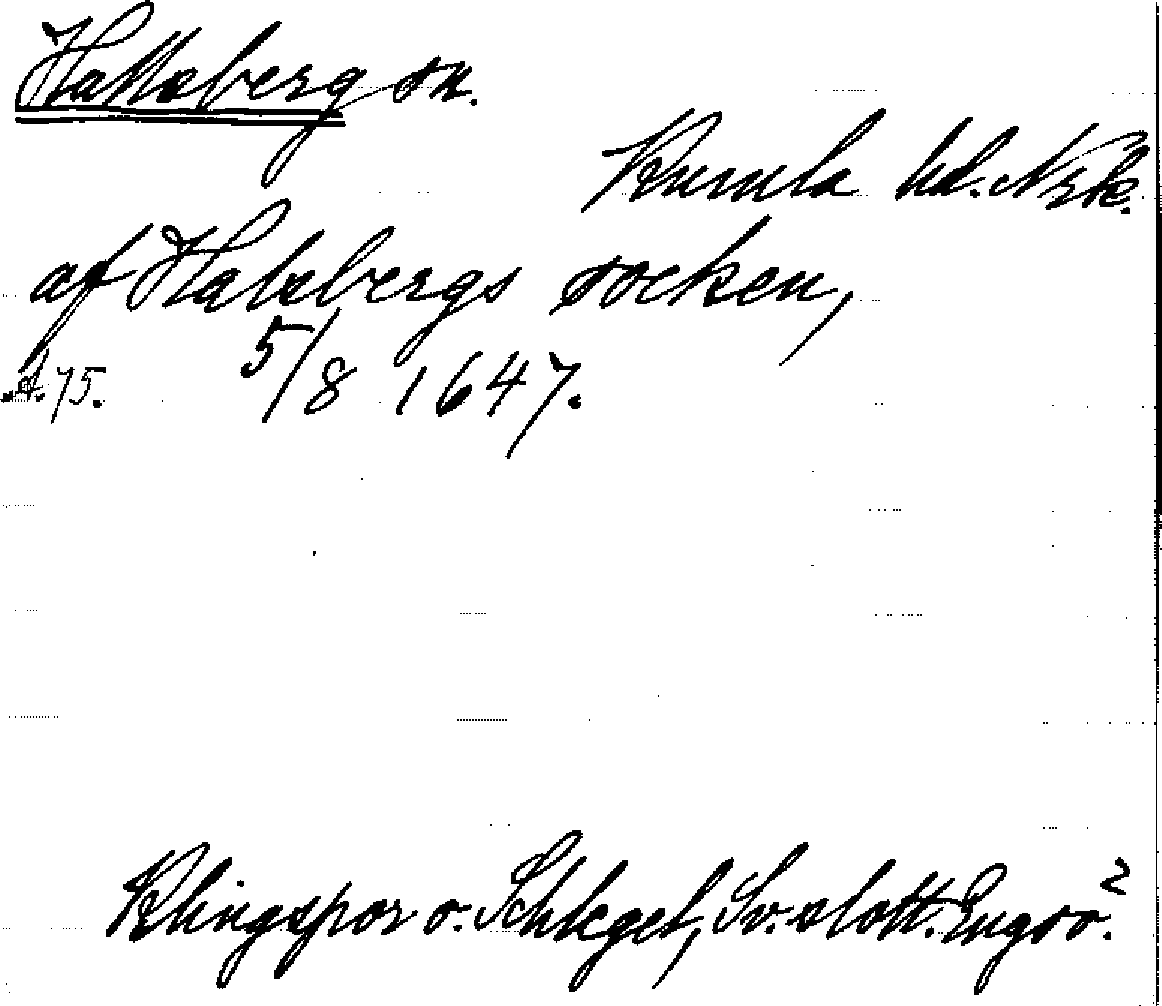 Hallsberg sn.
Kumla hd. Nrk.
af Halsbergs socken,
A. 75. 5/8 1647.
Klingspor o. Schlegel, Sv. slott. Engsö.²